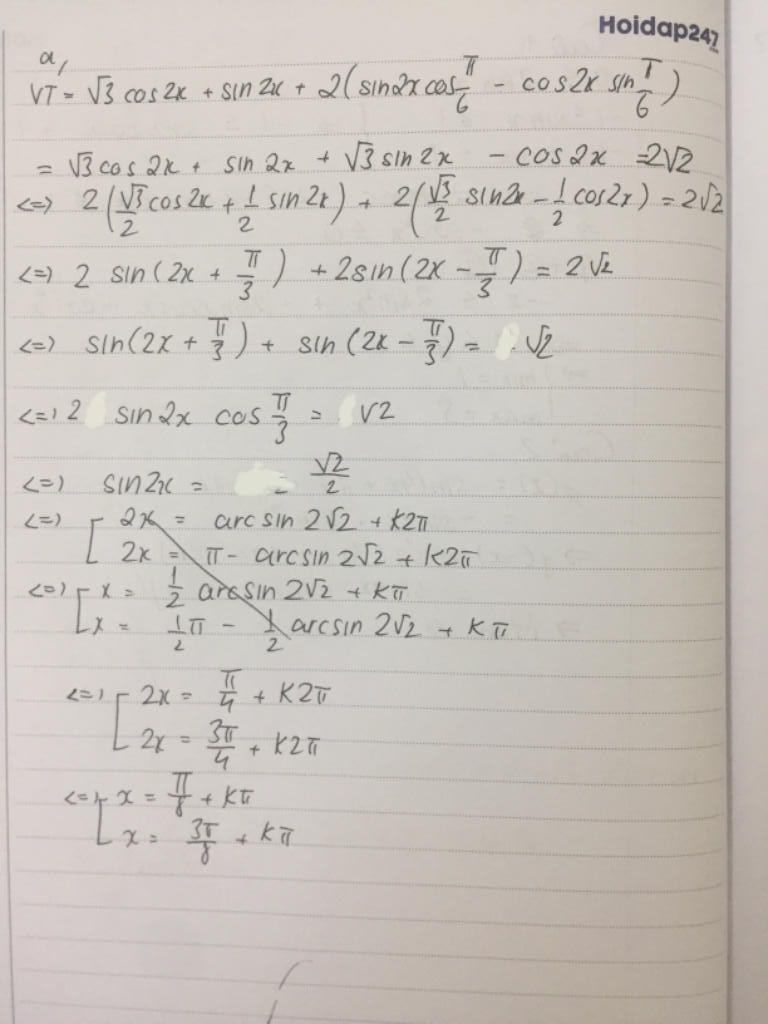 Hoidap247
a,
VT = √3 cos2x + sin2x + 2(sin2x cos π/6 - cos2x sin π/6)
= √3 cos2x + sin2x + √3 sin2x - cos2x = 2√2
<=> 2(√3/2 cos2x + 1/2 sin2x) + 2(√3/2 sin2x - 1/2 cos2x) = 2√2
<=> 2 sin(2x + π/3) + 2sin(2x - π/3) = 2√2
<=> sin(2x + π/3) + sin(2x - π/3) = √2
<=> 2 sin2x cos π/3 = √2
<=> sin2x = = √2/2
<=> [ 2x = arcsin 2√2 + k2π
2x = π - arcsin 2√2 + k2π
<=> [ x = 1/2 arcsin 2√2 + kπ
x = 1/2 π - 1/2 arcsin 2√2 + kπ
<=> [ 2x = π/4 + k2π
2x = 3π/4 + k2π
<=> [ x = π/8 + kπ
x = 3π/8 + kπ